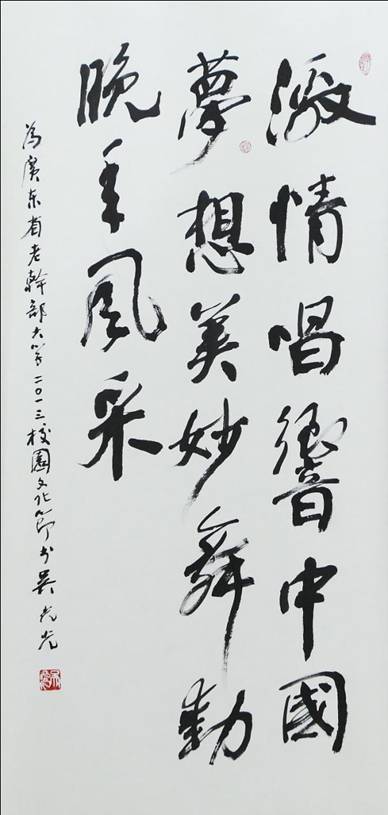 激情唱響中國
夢想美妙舞動
晚年風采
為廣东省老幹部大学二〇一三校園文化節书吳